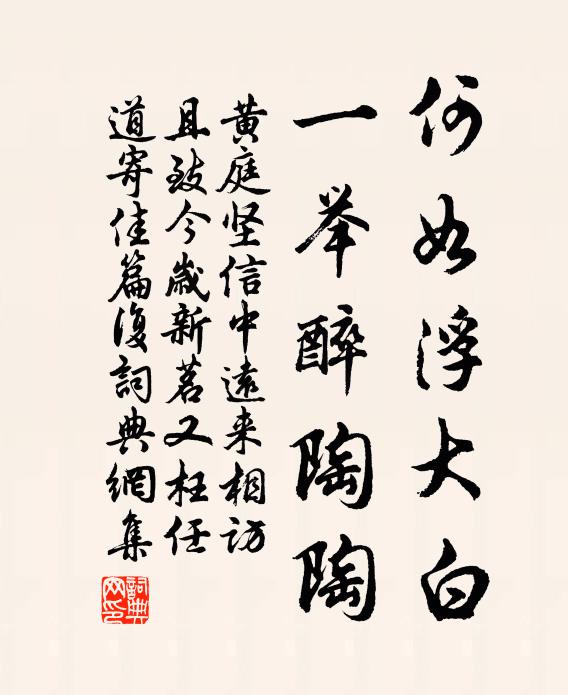 何如浮大白
一举醉陶陶
黄庭坚信中遠来相訪
且致今歲新茗又枉任
道寄佳篇復詞典網集
詞典網印